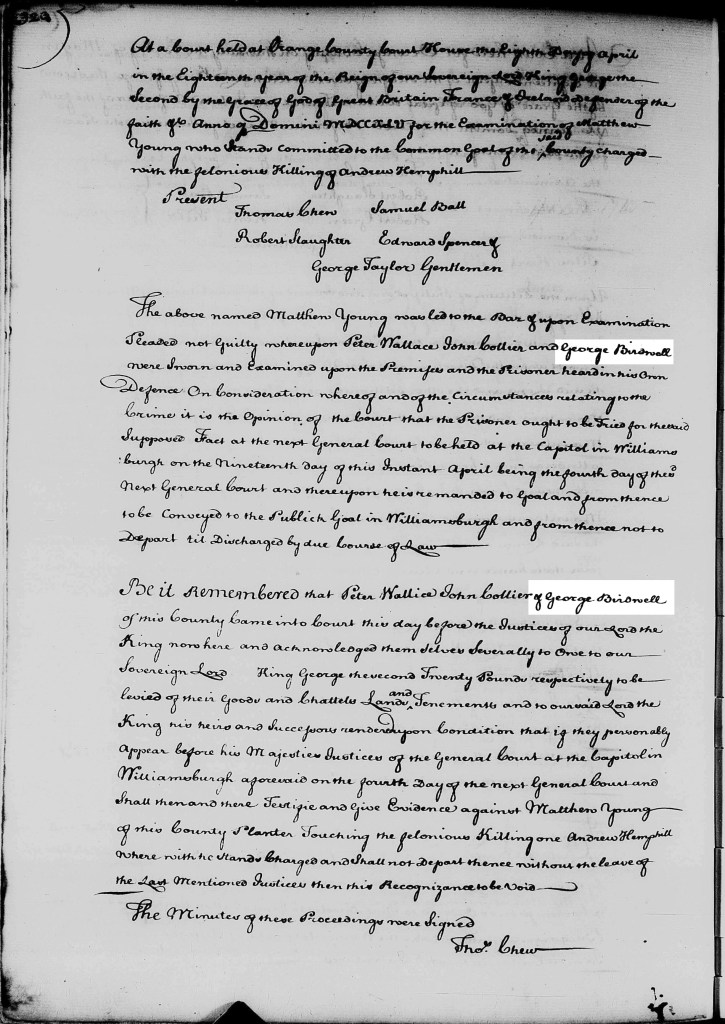 323
At a Court held at Orange County Court House the Eighth Day of April
in the Eighteenth year of the Reign of our Sovereign Lord King George the
Second by the Grace of God of Great Britain France & Ireland Defender of the
faith &c Anno q Domini MDCCXLV for the Examination of Matthew
Young who Stands Committed to the Common Goal of the said County Charged
with the felonious Killing of Andrew Hemphill
Present
Thomas Chew Samuel Ball
Robert Slaughter Edward Spencer &
George Taylor Gentlemen
The above named Matthew Young was led to the Bar & upon Examination
Pleaded not Guilty whereupon Peter Wallace John Collier and George Birdwell
were Sworn and Examined upon the Premises and the Prisoner heard in his Own
Defence On Consideration whereof and of the Circumstances relating to the
Crime it is the Opinion of the Court that the Prisoner ought to be Tried for the said
Supposed Fact at the next General Court to be held at the Capitol in Williams
burgh on the Nineteenth day of this Instant April being the fourth day of the sd
Next General Court and thereupon he is remanded to Goal and from thence
to be Conveyed to the Publick Goal in Williamsburgh and from thence not to
Depart til Discharged by due Course of Law
Be it Remembered that Peter Wallice John Collier & George Birdwell
of this County Came into Court this day before the Justices of our Lord the
King now here and acknowledged them selves Severally to Owe to our
Sovereign Lord King George the second Twenty Pounds respectively to be
levied of their Goods and Chattels Lands and Tenements and to our said Lord the
King his heirs and Successors rendered upon Condition that if they personally
Appear before his Majesties Justices of the General Court at the Capitol in
Williamsburgh aforesaid on the fourth Day of the next General Court and
Shall then and there Testifie and Give Evidence against Matthew Young
of this County Planter Touching the felonious Killing one Andrew Hemphill
where with he Stands Charged and Shall not Depart thence without the leave of
the Last Mentioned Justices then this Recognizance to be Void
The Minutes of these Proceedings were Signed
Thos. Chew